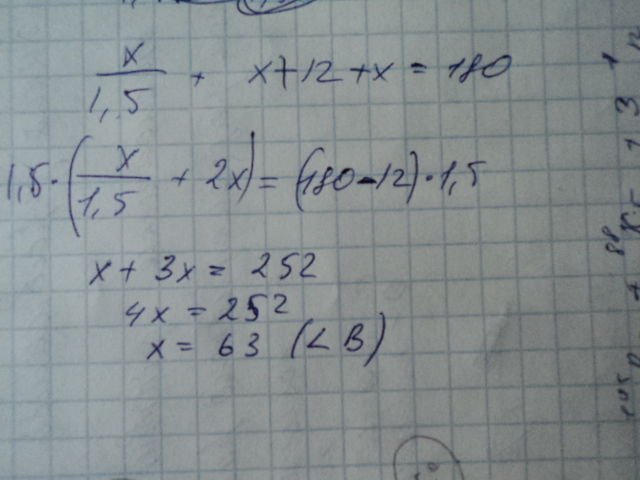 x/1,5 + x+12+x = 180
1,5·(x/1,5 + 2x) = (180-12)·1,5
x + 3x = 252
4x = 252
x = 63 (∠B)